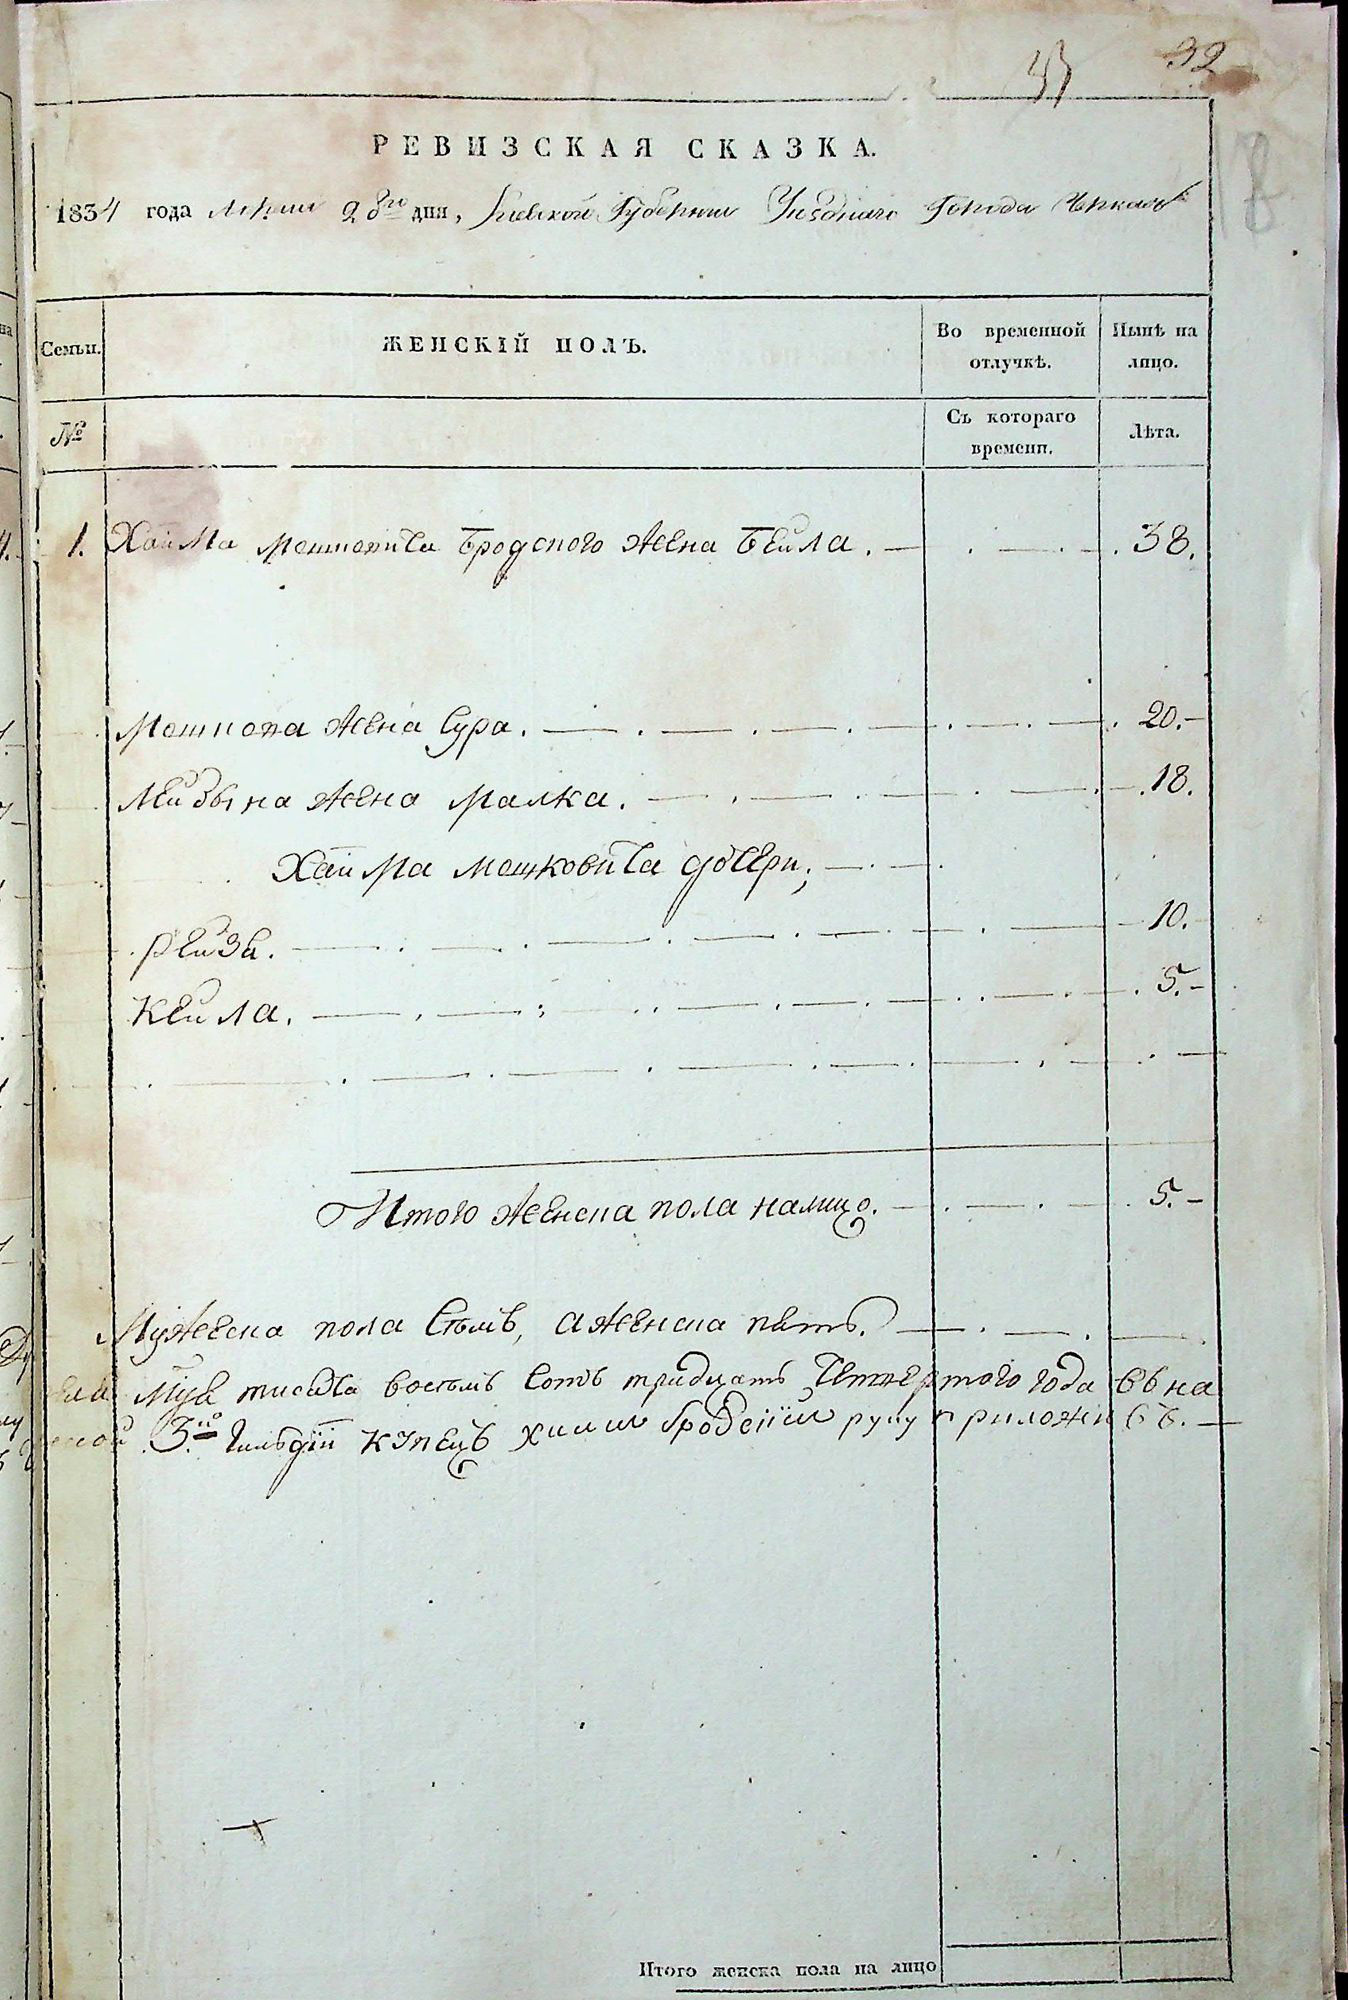 32
РЕВИЗСКАЯ СКАЗКА.
1834 года 28го дня, Киевской Губернии Уезднаго Города
Семьи.
ЖЕНСКІЙ ПОЛЪ.
Во временной отлучкѣ.
Нынѣ на лицо.
№
Съ котораго времени.
Лѣта.
1. Хайма Мошковича Бродского жена Бейла. 38.
Мошкова жена Сура. 20.
Лейзына жена Малка. 18.
Хайма Мошковича дочери;
Рейза. 10.
Кейла. 5.
Итого женска пола налицо. 5.
Мужеска пола семь, а женска пять.
тисяча восемь сотъ тридцать четвертого года въ на
3й гильдіи купецъ руку приложивъ.
Итого женска пола на лицо